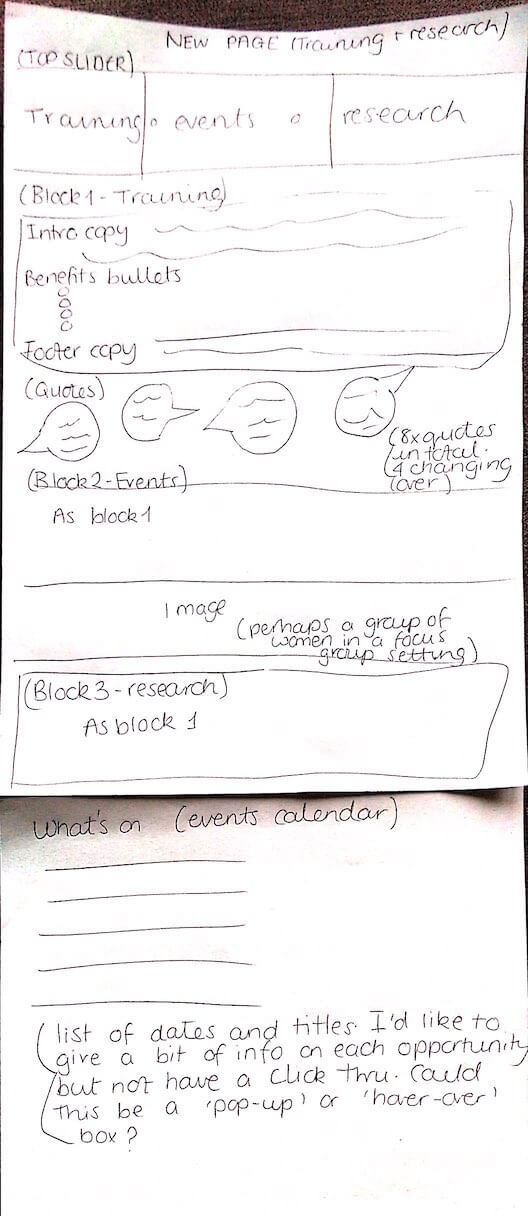 NEW PAGE (Training + research)
(TOP SLIDER)
Training events research
(Block 1 - Training)
Intro copy
Benefits bullets
Footer copy
(Quotes)
(8x quotes
in total.
4 changing
over)
(Block 2 - Events)
As block 1
Image
(perhaps a group of
women in a focus
group setting)
(Block 3 - research)
As block 1
What's on (events calendar)
(list of dates and titles. I'd like to
give a bit of info on each opportunity
but not have a click thru. Could
this be a 'pop-up' or 'hover-over'
box?